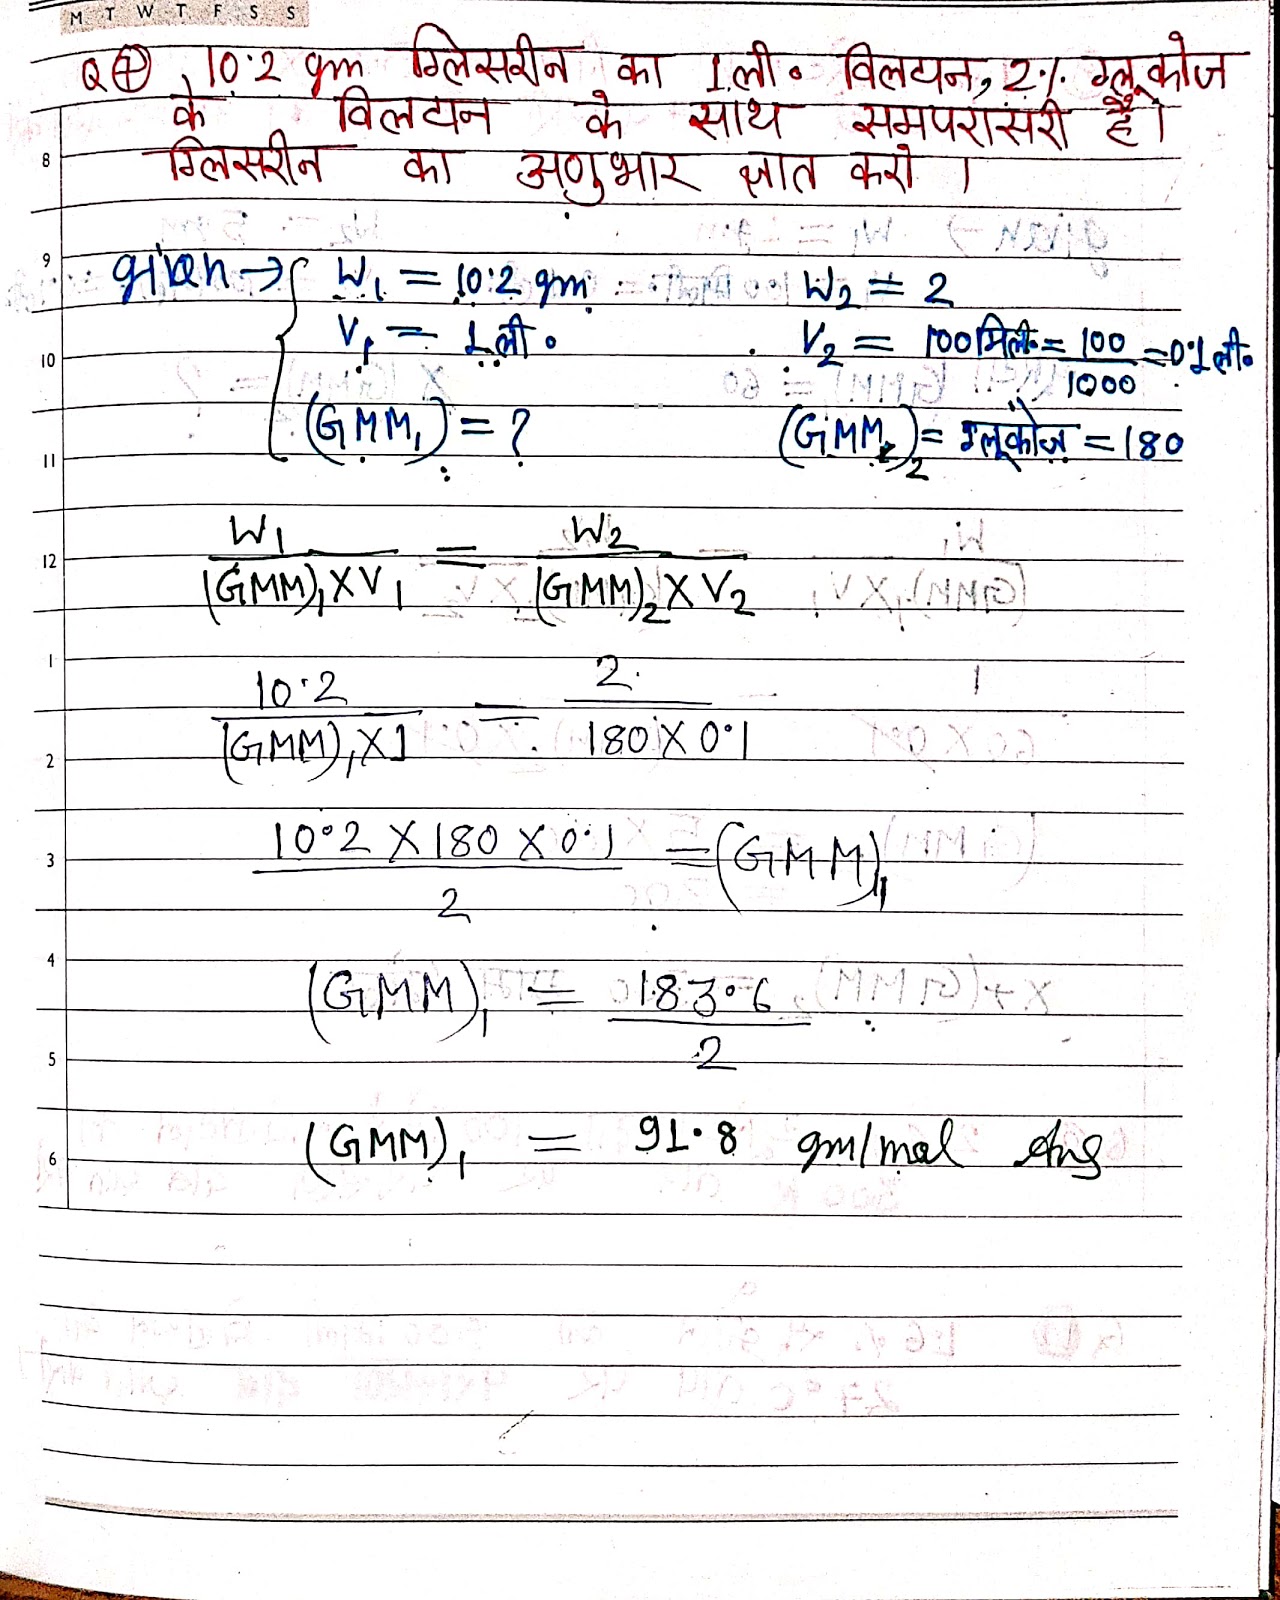 M T W T F S S
Q(7) 10.2 gm ग्लिसरीन का 1ली० विलयन, 2% ग्लूकोज
के विलयन के साथ समपरासरी है।
ग्लिसरीन का अणुभार ज्ञात करो ।
8
9
given → W₁ = 10.2 gm W₂ = 2
V₁ = 1ली० V₂ = 100 मिली० = 100/1000 = 0.1 ली०
10
(GMM₁) = ? (GMM)₂ = ग्लूकोज = 180
11
W₁/(GMM)₁XV₁ = W₂/(GMM)₂XV₂
12
1
10.2/(GMM)₁X1 = 2/180X0.1
2
10.2 X 180 X 0.1/2 = (GMM)₁
3
4
(GMM)₁ = 183.6/2
5
(GMM)₁ = 91.8 gm/mol Ans
6